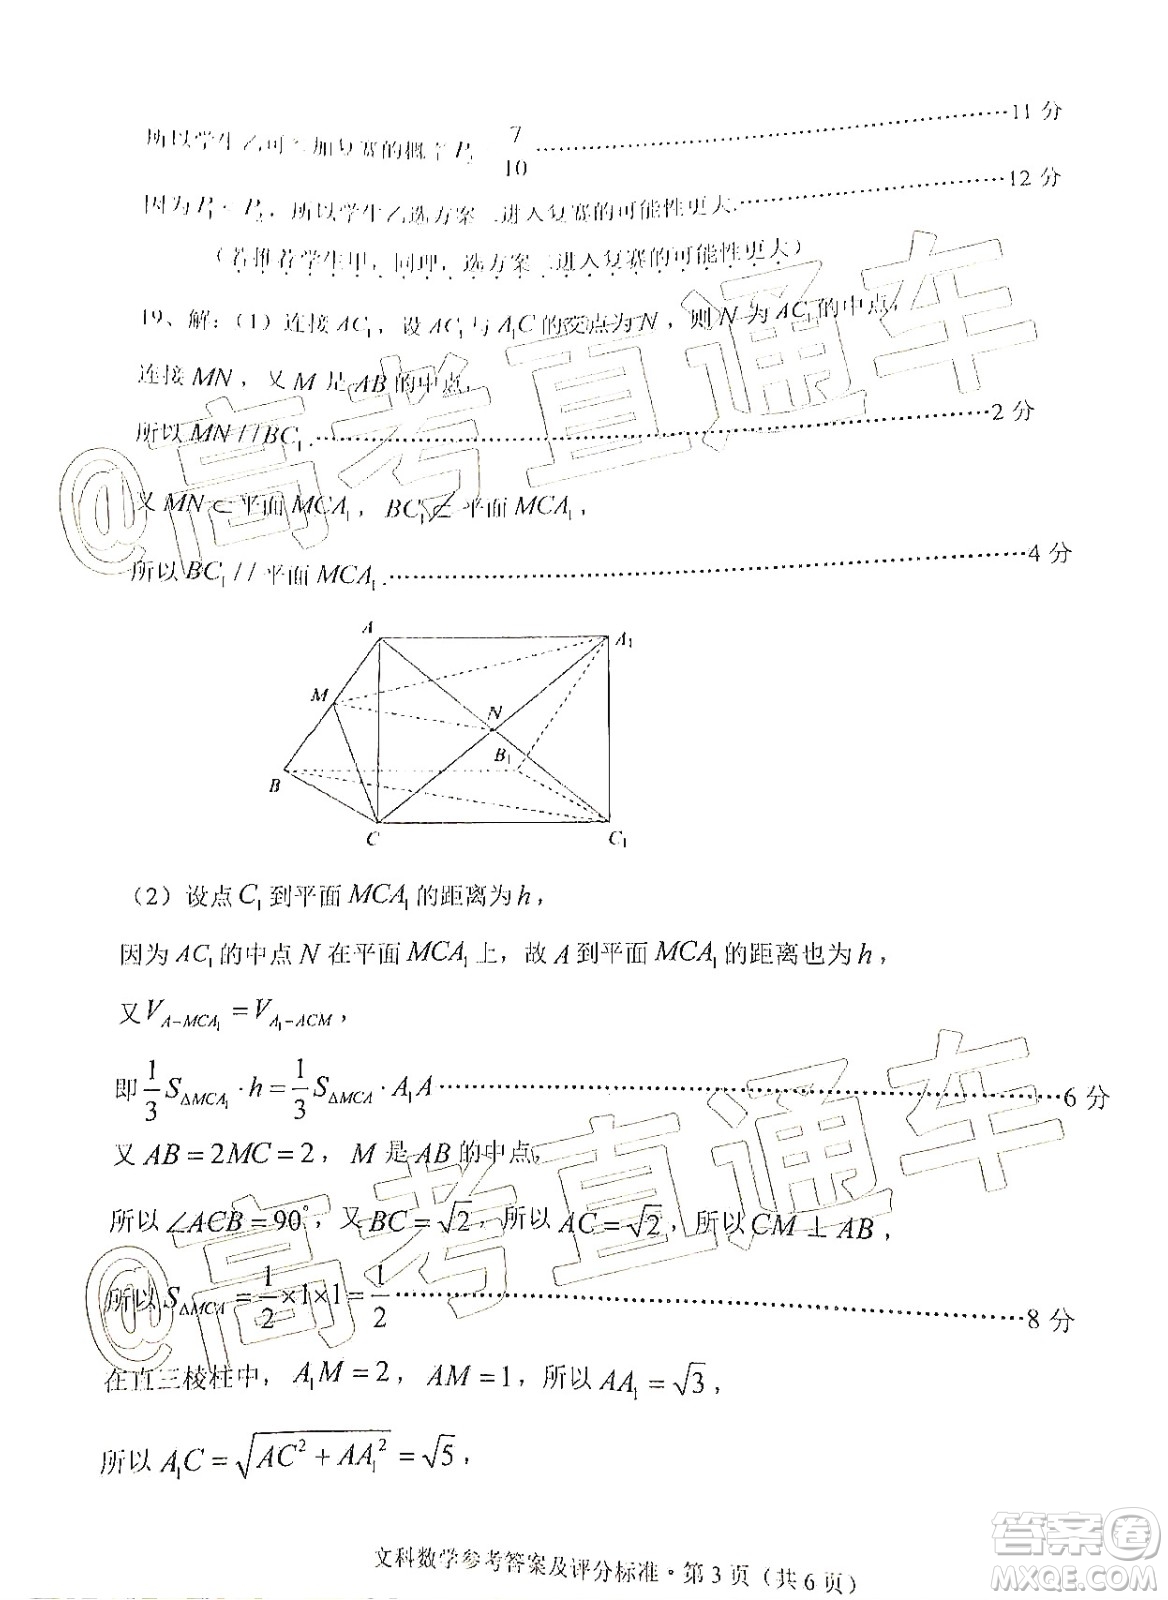 所以学生乙可参加复赛的概率P₂ 7/10 ……11 分
因为 P₁ P₂，所以学生乙选方案二进入复赛的可能性更大.……12 分
（若推荐学生甲，同理，选方案二进入复赛的可能性更大）
19、解：（1）连接 AC₁，设 AC₁ 与 A₁C 的交点为 N，则 N 为 AC₁ 的中点，
连接 MN，又 M 是 AB 的中点，
所以 MN // BC₁.……2 分
又 MN ⊂ 平面 MCA₁，BC₁ ⊄ 平面 MCA₁，
所以 BC₁ // 平面 MCA₁.……4 分
A A₁
M
N
B₁
B
C C₁
（2）设点 C₁ 到平面 MCA₁ 的距离为 h，
因为 AC₁ 的中点 N 在平面 MCA₁ 上，故 A 到平面 MCA₁ 的距离也为 h，
又 V_{A-MCA₁} = V_{A₁-ACM}，
即 1/3 S_{ΔMCA₁} · h = 1/3 S_{ΔMCA} · A₁A ……6 分
又 AB = 2MC = 2，M 是 AB 的中点，
所以 ∠ACB = 90°，又 BC = √2，所以 AC = √2，所以 CM ⊥ AB，
所以 S_{ΔMCA} = 1/2 × 1 × 1 = 1/2 ……8 分
在直三棱柱中，A₁M = 2，AM = 1，所以 AA₁ = √3，
所以 A₁C = √(AC² + AA₁²) = √5，
文科数学参考答案及评分标准·第 3 页（共 6 页）
@高考直通车
@高考直通车
答案圈
MXQE.COM